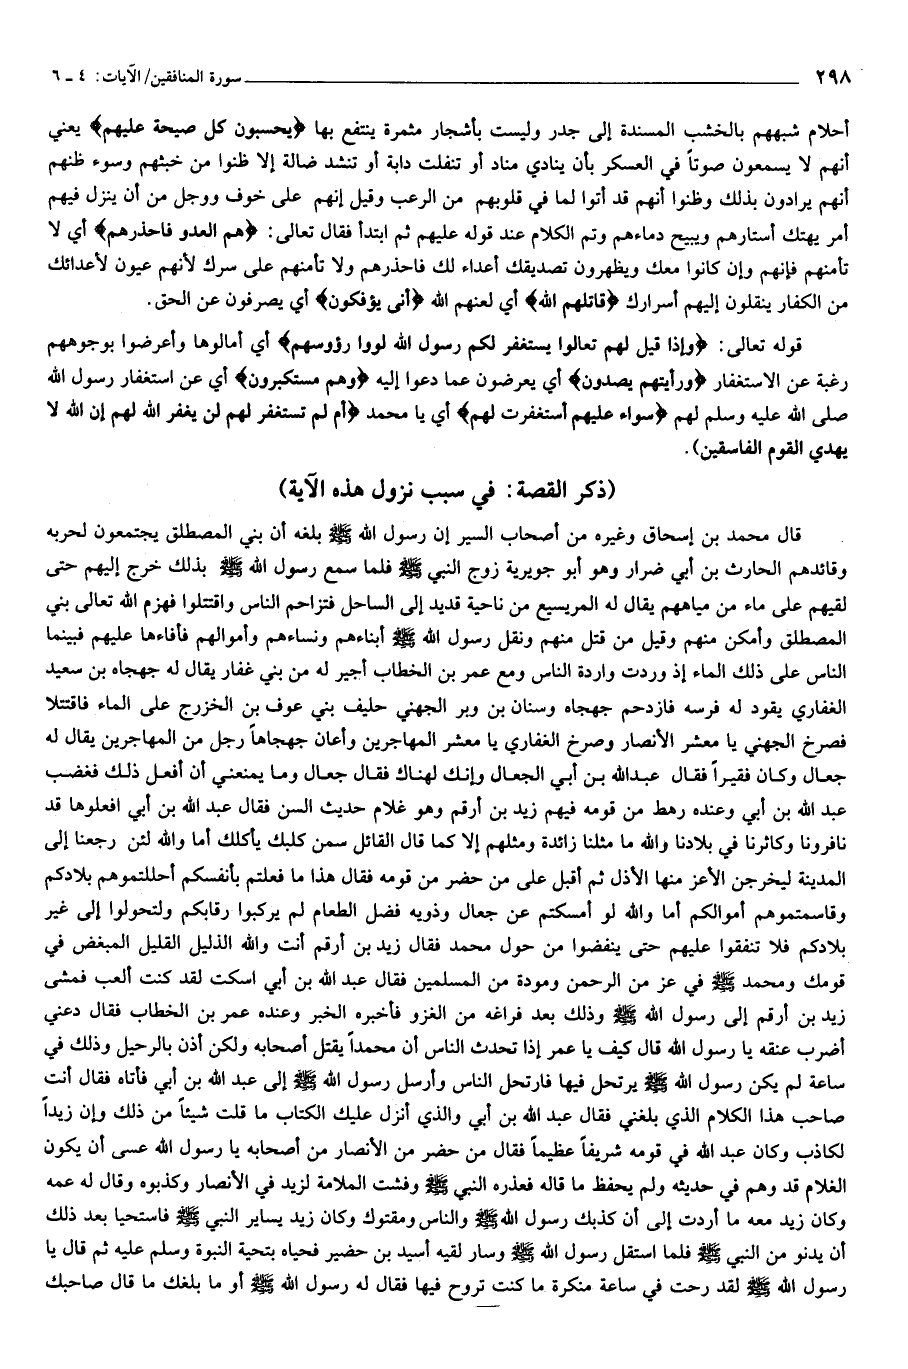 ٢٩٨ سورة المنافقين/ الآيات: ٤ ـ ٦
أحلام شبههم بالخشب المسندة إلى جدر وليست بأشجار مثمرة ينتفع بها ﴿يحسبون كل صيحة عليهم﴾ يعني
أنهم لا يسمعون صوتاً في العسكر بأن ينادي مناد أو تنفلت دابة أو تنشد ضالة إلا ظنوا من خبثهم وسوء ظنهم
أنهم يرادون بذلك وظنوا أنهم قد أتوا لما في قلوبهم من الرعب وقيل إنهم على خوف ووجل من أن ينزل فيهم
أمر يهتك أستارهم ويبيح دماءهم وتم الكلام عند قوله عليهم ثم ابتدأ فقال تعالى: ﴿هم العدو فاحذرهم﴾ أي لا
تأمنهم فإنهم وإن كانوا معك ويظهرون تصديقك أعداء لك فاحذرهم ولا تأمنهم على سرك لأنهم عيون لأعدائك
من الكفار ينقلون إليهم أسرارك ﴿قاتلهم الله﴾ أي لعنهم الله ﴿أنى يؤفكون﴾ أي يصرفون عن الحق.
قوله تعالى: ﴿وإذا قيل لهم تعالوا يستغفر لكم رسول الله لووا رؤوسهم﴾ أي أمالوها وأعرضوا بوجوههم
رغبة عن الاستغفار ﴿ورأيتهم يصدون﴾ أي يعرضون عما دعوا إليه ﴿وهم مستكبرون﴾ أي عن استغفار رسول الله
صلى الله عليه وسلم لهم ﴿سواء عليهم أستغفرت لهم﴾ أي يا محمد ﴿أم لم تستغفر لهم لن يغفر الله لهم إن الله لا
يهدي القوم الفاسقين).
(ذكر القصة: في سبب نزول هذه الآية)
قال محمد بن إسحاق وغيره من أصحاب السير إن رسول الله ﷺ بلغه أن بني المصطلق يجتمعون لحربه
وقائدهم الحارث بن أبي ضرار وهو أبو جويرية زوج النبي ﷺ فلما سمع رسول الله ﷺ بذلك خرج إليهم حتى
لقيهم على ماء من مياههم يقال له المريسيع من ناحية قديد إلى الساحل فتزاحم الناس واقتتلوا فهزم الله تعالى بني
المصطلق وأمكن منهم وقيل من قتل منهم ونقل رسول الله ﷺ أبناءهم ونساءهم وأموالهم فأفاءها عليهم فبينما
الناس على ذلك الماء إذ وردت واردة الناس ومع عمر بن الخطاب أجير له من بني غفار يقال له جهجاه بن سعيد
الغفاري يقود له فرسه فازدحم جهجاه وسنان بن وبر الجهني حليف بني عوف بن الخزرج على الماء فاقتتلا
فصرخ الجهني يا معشر الأنصار وصرخ الغفاري يا معشر المهاجرين وأعان جهجاهاً رجل من المهاجرين يقال له
جعال وكان فقيراً فقال عبدالله بن أبي الجعال وإنك لهناك فقال جعال وما يمنعني أن أفعل ذلك فغضب
عبد الله بن أبي وعنده رهط من قومه فيهم زيد بن أرقم وهو غلام حديث السن فقال عبد الله بن أبي افعلوها قد
نافرونا وكاثرنا في بلادنا والله ما مثلنا زائدة ومثلهم إلا كما قال القائل سمن كلبك يأكلك أما والله لئن رجعنا إلى
المدينة ليخرجن الأعز منها الأذل ثم أقبل على من حضر من قومه فقال هذا ما فعلتم بأنفسكم أحللتموهم بلادكم
وقاسمتموهم أموالكم أما والله لو أمسكتم عن جعال وذويه فضل الطعام لم يركبوا رقابكم ولتحولوا إلى غير
بلادكم فلا تنفقوا عليهم حتى ينفضوا من حول محمد فقال زيد بن أرقم أنت والله الذليل القليل المبغض في
قومك ومحمد ﷺ في عز من الرحمن ومودة من المسلمين فقال عبد الله بن أبي اسكت لقد كنت ألعب فمشى
زيد بن أرقم إلى رسول الله ﷺ وذلك بعد فراغه من الغزو فأخبره الخبر وعنده عمر بن الخطاب فقال دعني
أضرب عنقه يا رسول الله قال كيف يا عمر إذا تحدث الناس أن محمداً يقتل أصحابه ولكن أذن بالرحيل وذلك في
ساعة لم يكن رسول الله ﷺ يرتحل فيها فارتحل الناس وأرسل رسول الله ﷺ إلى عبد الله بن أبي فأتاه فقال أنت
صاحب هذا الكلام الذي بلغني فقال عبد الله بن أبي والذي أنزل عليك الكتاب ما قلت شيئاً من ذلك وإن زيداً
لكاذب وكان عبد الله في قومه شريفاً عظيماً فقال من حضر من الأنصار من أصحابه يا رسول الله عسى أن يكون
الغلام قد وهم في حديثه ولم يحفظ ما قاله فعذره النبي ﷺ وفشت الملامة لزيد في الأنصار وكذبوه وقال له عمه
وكان زيد معه ما أردت إلى أن كذبك رسول الله ﷺ والناس ومقتوك وكان زيد يساير النبي ﷺ فاستحيا بعد ذلك
أن يدنو من النبي ﷺ فلما استقل رسول الله ﷺ وسار لقيه أسيد بن حضير فحياه بتحية النبوة وسلم عليه ثم قال يا
رسول الله ﷺ لقد رحت في ساعة منكرة ما كنت تروح فيها فقال له رسول الله ﷺ أو ما بلغك ما قال صاحبك